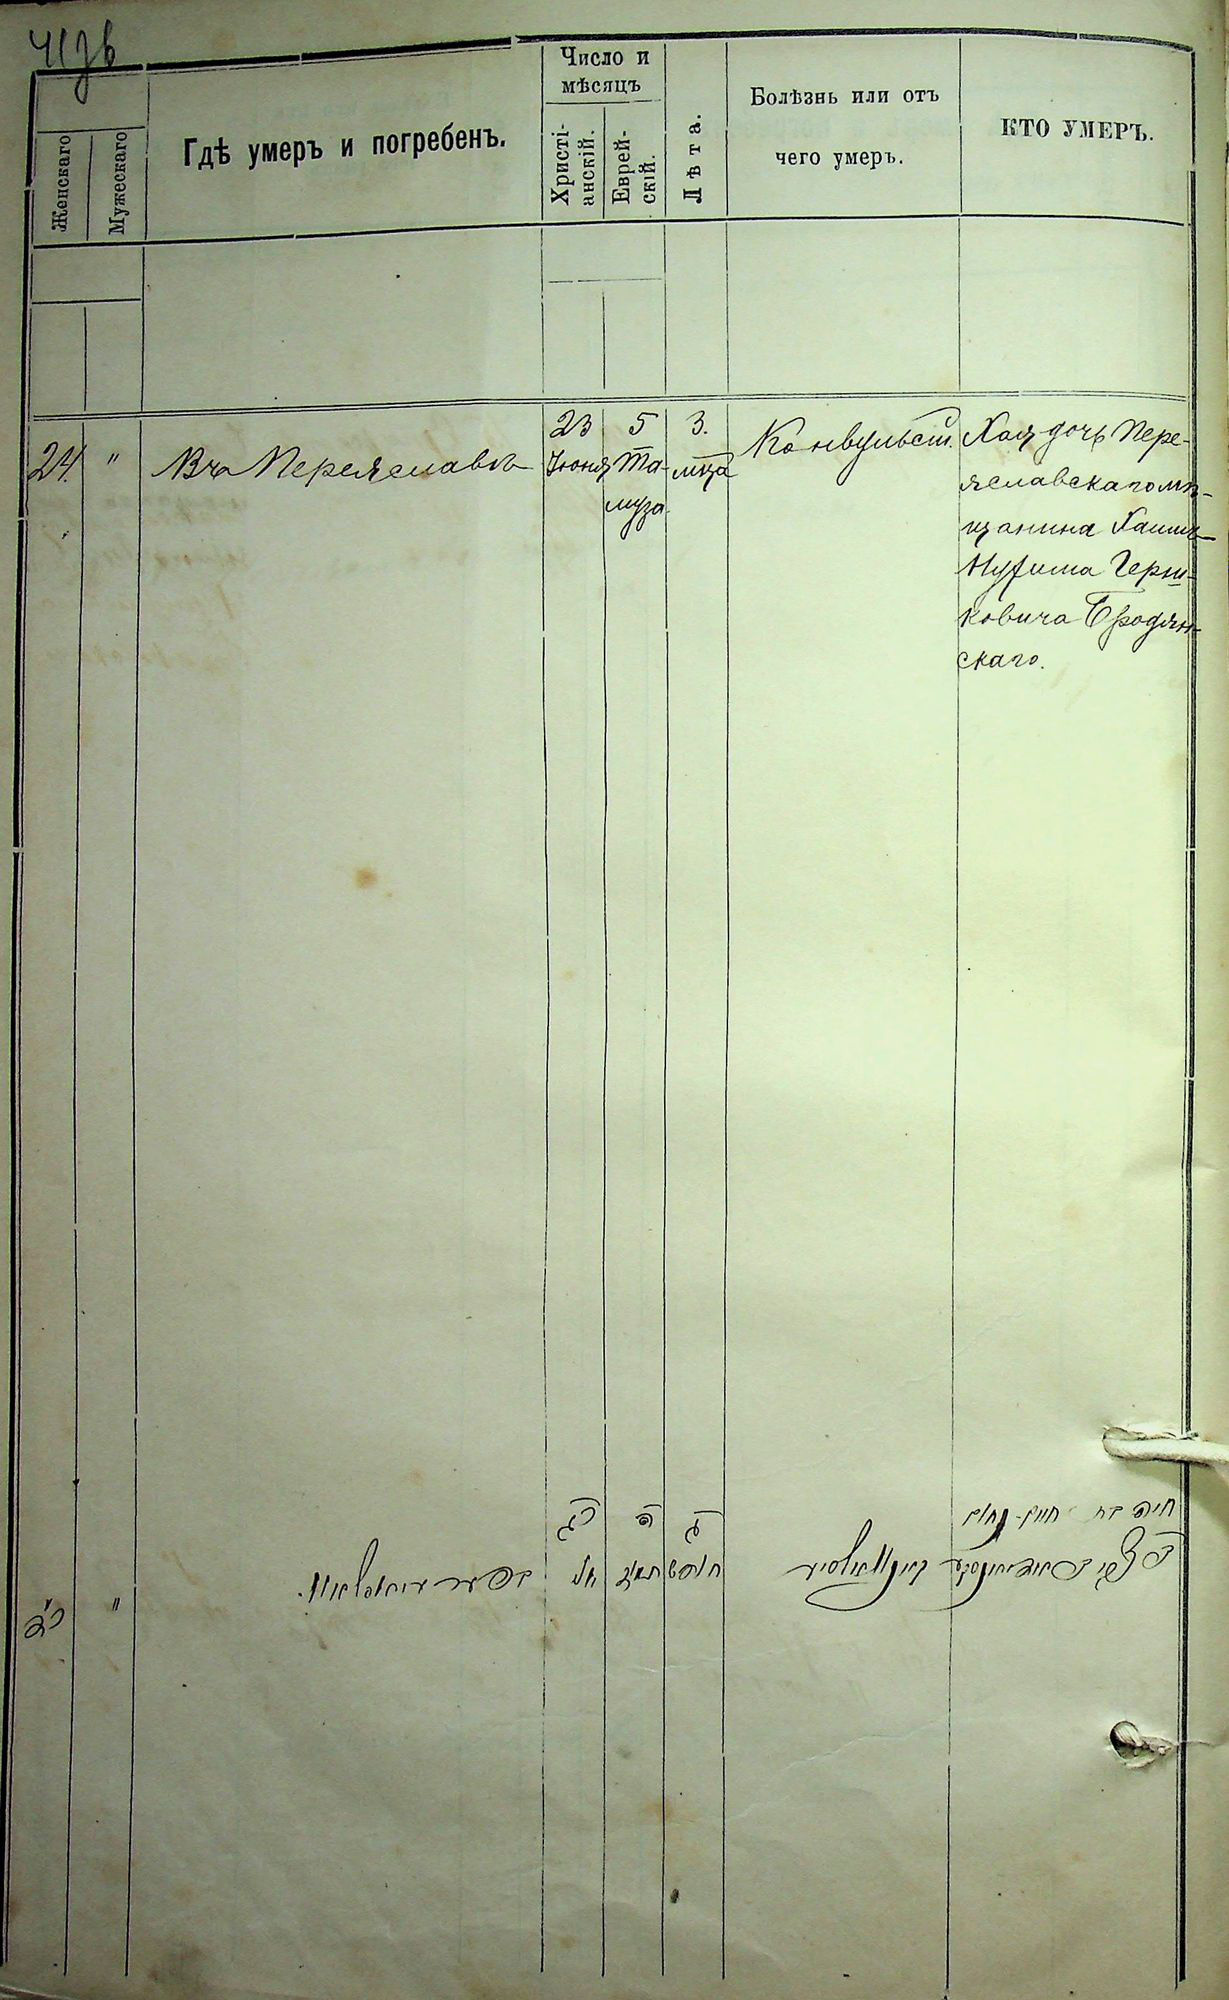 Женскаго
Мужескаго
Гдѣ умеръ и погребенъ.
Число и
мѣсяцъ
Христі-
анскій.
Еврей-
скій.
Лѣта.
Болѣзнь или отъ
чего умеръ.
КТО УМЕРЪ.
24.
"
Въ Переяславѣ
23
Іюня
5
Та-
муза
3.
мѣца
Конвульсіи.
Хая дочь Пере-
яславскаго мѣ-
щанина Хаимъ-
Нухима Герш-
ковича Бродян-
скаго.
חיה בת חיים נחום
כג
ה
ג
כד
"